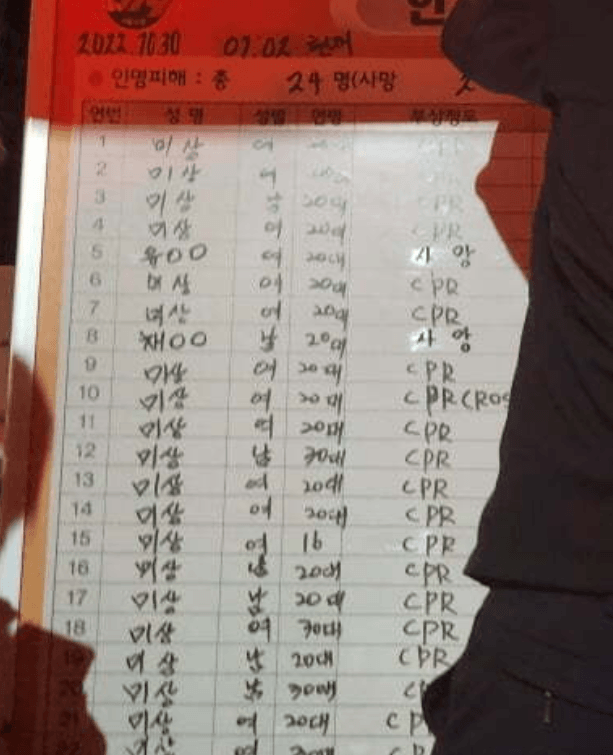 2022.10.30 01.02 현재
인명피해 : 총 24 명(사망 2
연번 성 명 성별 연령 부상정도
1 미상 여 CPR
2 미상 여 CPR
3 미상 남 20대 CPR
4 미상 여 20대 CPR
5 OO 여 20대 사망
6 미상 여 20대 CPR
7 미상 여 20대 CPR
8 채OO 남 20대 사망
9 미상 여 20대 CPR
10 미상 여 20대 CPR(ROS
11 미상 여 20대 CPR
12 미상 남 30대 CPR
13 미상 여 20대 CPR
14 미상 여 20대 CPR
15 미상 여 16 CPR
16 미상 남 20대 CPR
17 미상 남 20대 CPR
18 미상 여 30대 CPR
19 미상 남 20대 CPR
20 미상 남 30대 CP
21 미상 여 20대 CP
22 미상 여 30대